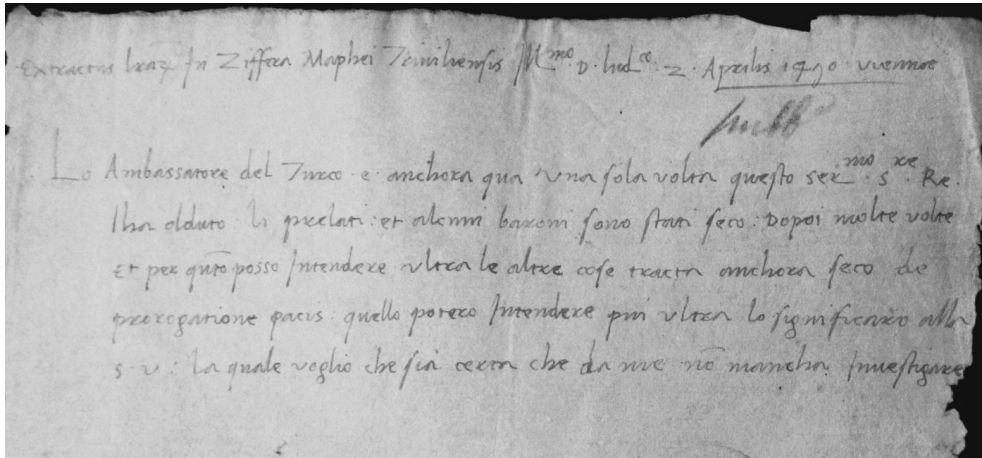 Extractus l(ite)rar(um) In Ziffera Maphei Triviliensis Ill^mo. D. lud^co. 2. Aprilis 1490 viennae
Lo Ambassatore del Turco e anchora qua una sola volta questo ser^mo. s. Re.
lha alduto li prelati: et alcuni baroni sono stati seco: Dopoi molte volte
Et per qu̅to posso Intendere ultra le altre cose tracta anchora seco de
prorogatione pacis. quello potero Intendere piu ultra lo significaro alla
s. v: La quale voglio che sia certa che da me no̅ mancha Investigare